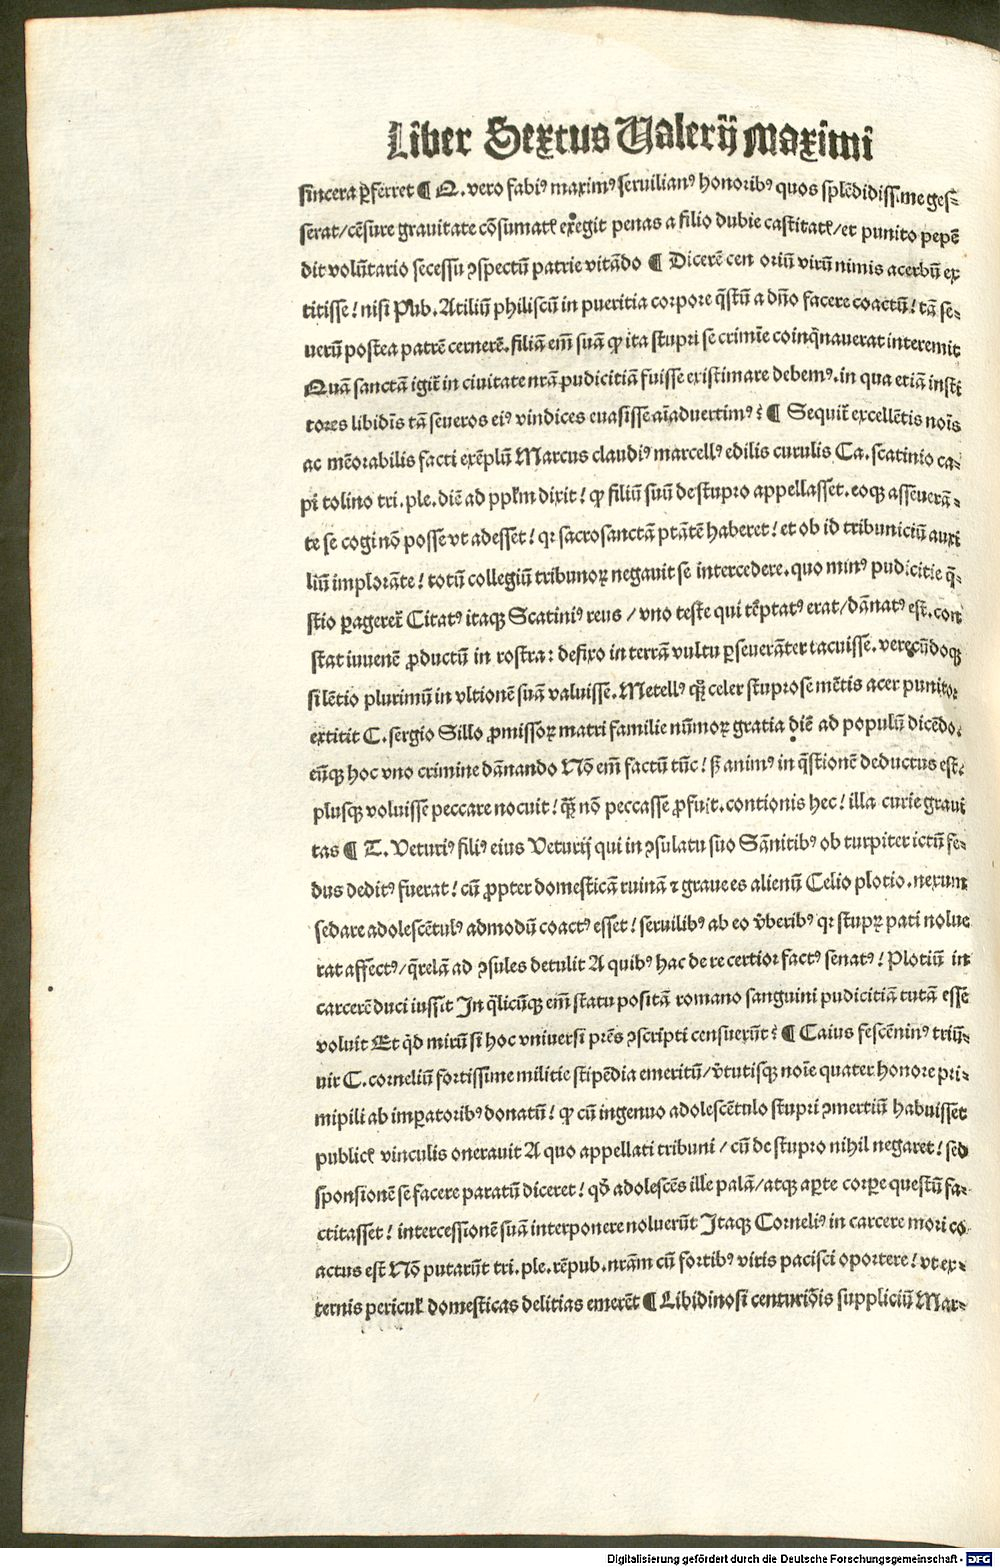 Liber Sextus Ualerij Maximi
sincera ꝑferret ¶ Q. vero fabiꝰ maximꝰ seruilianꝰ honoribꝰ quos splēdidissime ges⸗
serat/cēsure grauitate cōsumatꝭ exegit penas a filio dubie castitatꝭ/et punito pepē
dit volūtario secessu ꝯspectū patrie vitādo ¶ Dicerē cen oriū virū nimis acerbū ex
titisse! nisi Pub. Atiliū philiscū in pueritia corpore q̄stū a dn̄o facere coactū! tā se⸗
uerū postea patrē cernerē. filiā em̄ suā ꝙ ita stupri se crimīe coinq̄nauerat interemit
Quā sanctā igit̄ in ciuitate nrā pudicitiā fuisse existimare debemꝰ. in qua etiā insti
tores libidīs tā seueros eiꝰ vindices euasisse aīaduertimꝰ? ¶ Sequit̄ excellētis noīs
ac mēorabilis facti exēplū Marcus claudiꝰ marcellꝰ edilis curulis Ca. scatinio ca⸗
pi tolino tri. ple. diē ad pplm dixit! ꝙ filiū suū de stupro appellasset. eoqꝫ asseuerā⸗
te se cogi nō posse vt adesset! qꝛ sacrosanctā ptātē haberet! et ob id tribuniciū auxi
liū implorāte! totū collegiū tribunoꝝ negauit se intercedere. quo minꝰ pudicitie q̄⸗
stio ꝑageret̄ Citatꝰ itaqꝫ Scatiniꝰ reus / vno teste qui tēptatꝰ erat/dānatꝰ est. con
stat iuuenē ꝓductū in rostra: defixo in terrā vultu ꝑseuerāter tacuisse. verecūdoqꝫ
silētio plurimū in vltionē suā valuisse. Metellꝰ qꝫ celer stuprose mētis acer punitor
extitit C. sergio Sillo ꝓmissoꝝ matri familie nūmoꝝ gratia diē ad populū dicēdo.
eūqꝫ hoc vno crimine dānando Nō em̄ factū tūc! sꝫ animꝰ in q̄stionē deductus est.
plusqꝫ voluisse peccare nocuit! qꝫ nō peccasse ꝓfuit. contionis hec! illa curie graui
tas ¶ T. Veturiꝰ filiꝰ eius Veturij qui in ꝯsulatu suo Sānitibꝰ ob turpiter ictū fe⸗
dus deditꝰ fuerat! cū ꝓpter domesticā ruinā ⁊ graue es alienū Celio plotio. nexum
se dare adolescētulꝰ admodū coactꝰ esset! seruilibꝰ ab eo v̄beribꝰ qꝛ stupꝝ pati nolue
rat affectꝰ/q̄relā ad ꝯsules detulit A quibꝰ hac de re certior factꝰ senatꝰ! Plotiū in
carcerē duci iussit In q̄licūqꝫ em̄ statu positā romano sanguini pudicitiā tutā essē
voluit Et qd̄ mirū si hoc vniuersi prēs ꝯscripti censuerūt? ¶ Caius fescēninꝰ triū⸗
uir C. corneliū fortissime militie stipēdia emeritū/v̄tutisqꝫ noīe quater honore pri⸗
mipili ab imꝑatoribꝰ donatū! ꝙ cū ingenuo adolescētulo stupri ꝯmertiū habuisset
publicꝭ vinculis onerauit A quo appellati tribuni / cū de stupro nihil negaret! sed
sponsionē se facere paratū diceret! qđ adolescēs ille palā/atqꝫ aꝑte corꝑe questū fa⸗
ctitasset! intercessionē suā interponere noluerūt Itaqꝫ Corneliꝰ in carcere mori co
actus est Nō putarūt tri. ple. rēpub. nrām cū fortibꝰ viris pacisci oportere! vt ex⸗
ternis pericul̄ domesticas delitias emerēt ¶ Libidinosi centuriōis suppliciū Mar⸗
Digitalisierung gefördert durch die Deutsche Forschungsgemeinschaft - DFG